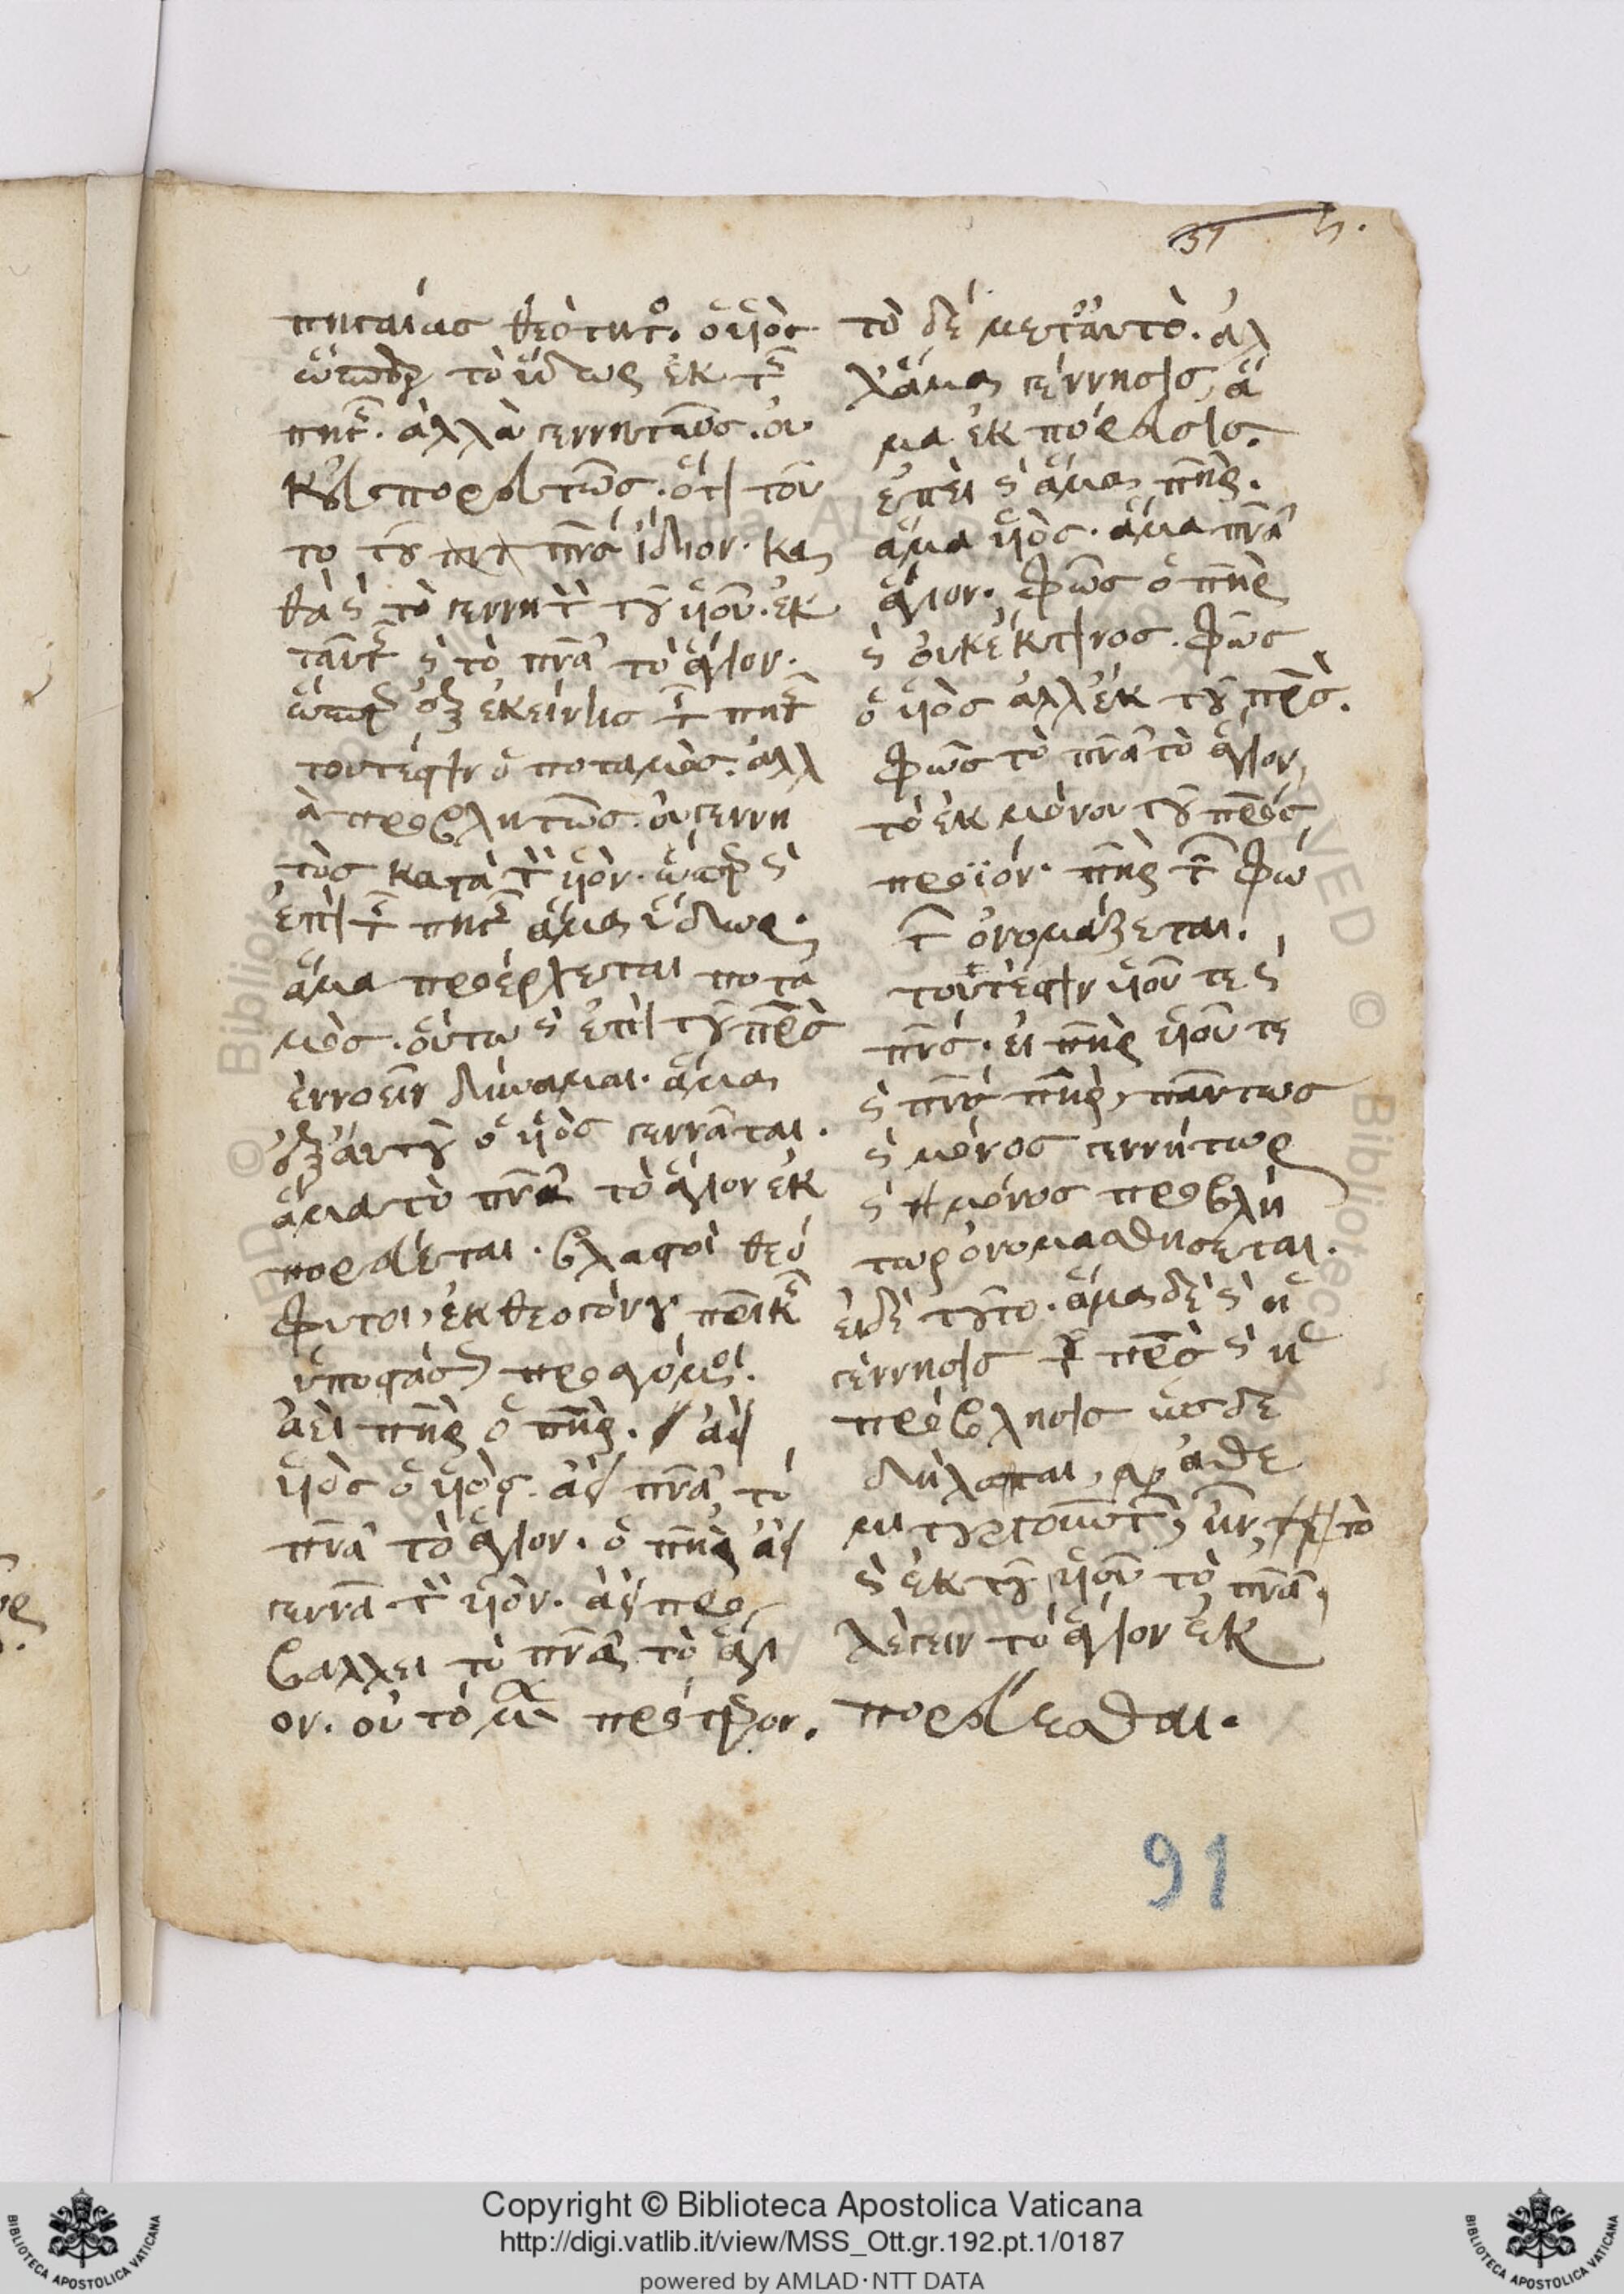 πηγαίας θεότητο. ὁ υἱὸς
ὥσπερ τὸ ὕδωρ ἐκ τ
πητ. ἀλλὰ γεννητῶς. οὐ
κ ἐκπορευτῶς. ὅτι τοῦ
το τοῦ πρς ἴδιον. κα
θὰ καὶ τὸ γεννητὸν τοῦ υἱοῦ. ἐκ
ταύτ καὶ τὸ πνα τὸ ἅγιον.
ὥσπερ ἐξ ἐκείνης τ πητ
τουτέστιν ὁ ποταμὸς. ἀλλ
ὰ προβλητῶς. οὐ γεννη
τὸς κατὰ τὸν υἱὸν. ὥσπερ καὶ
ἐπὶ τ πητ ἅμα ὕδωρ.
ἅμα προέρχεται ποτα
μὸς. οὕτω καὶ ἐπὶ τοῦ πρς
ἐννοεῖν δύναμαι. ἅμα
ἐξ αὐτοῦ ὁ υἱὸς γεννᾶται.
ἅμα τὸ πνα τὸ ἅγιον ἐκ
πορεύεται. βλαστοὶ θεό
φυτοι, ἐκ θεογόνου πρικ
ὑποστάσεως προαγόμενοι.
ἀεὶ πηρ ὁ πηρ. ἀεὶ
υἱὸς ὁ υἱὸς. ἀεὶ πνα τὸ
πνα τὸ ἅγιον. ὁ πηρ ἀεὶ
γεννᾶ τὸν υἱὸν. ἀεὶ προ
βαλλει τὸ πνα τὸ ἅγι
ον. οὐ τὸ μὲν πρότερον.
τὸ δὲ μετ αὐτὸ. ἀλ
λ ἅμα γέννησις, ἅ
μα ἐκπόρευσις.
ἐπεὶ καὶ ἅμα πηρ.
ἅμα υἱὸς. ἅμα πνα
ἅγιον. φῶς ὁ πηρ
καὶ οὐκ ἔκτινος. φῶς
ὁ υἱὸς ἀλλ ἐκ τοῦ πρς.
φῶς τὸ πνα τὸ ἅγιον,
τὸ ἐκ μόνου τοῦ πρς
προϊόν. πηρ τῶν φώ
τ ὀνομάζεται.
τουτέστιν υἱοῦ τε καὶ
πνς. εἰ πηρ υἱοῦ τε
καὶ πνς πηρ, πάντως
καὶ μόνος γεννήτωρ
καὶ μόνος προβλή
τωρ ὀνομασθήσεται.
εἰ δὲ τοῦτο. ἅμα δὲ καὶ ἡ
γέννησις τ πρς καὶ ἡ
πρόβλησις ὡς δε
δήλωται, παρ ἀθε
μιτ τὸ
καὶ ἐκ τοῦ υἱοῦ τὸ πνα,
λέγειν τὸ ἅγιον ἐκ
πορεύεσθαι.
91
Copyright © Biblioteca Apostolica Vaticana
http://digi.vatlib.it/view/MSS_Ott.gr.192.pt.1/0187
powered by AMLAD·NTT DATA